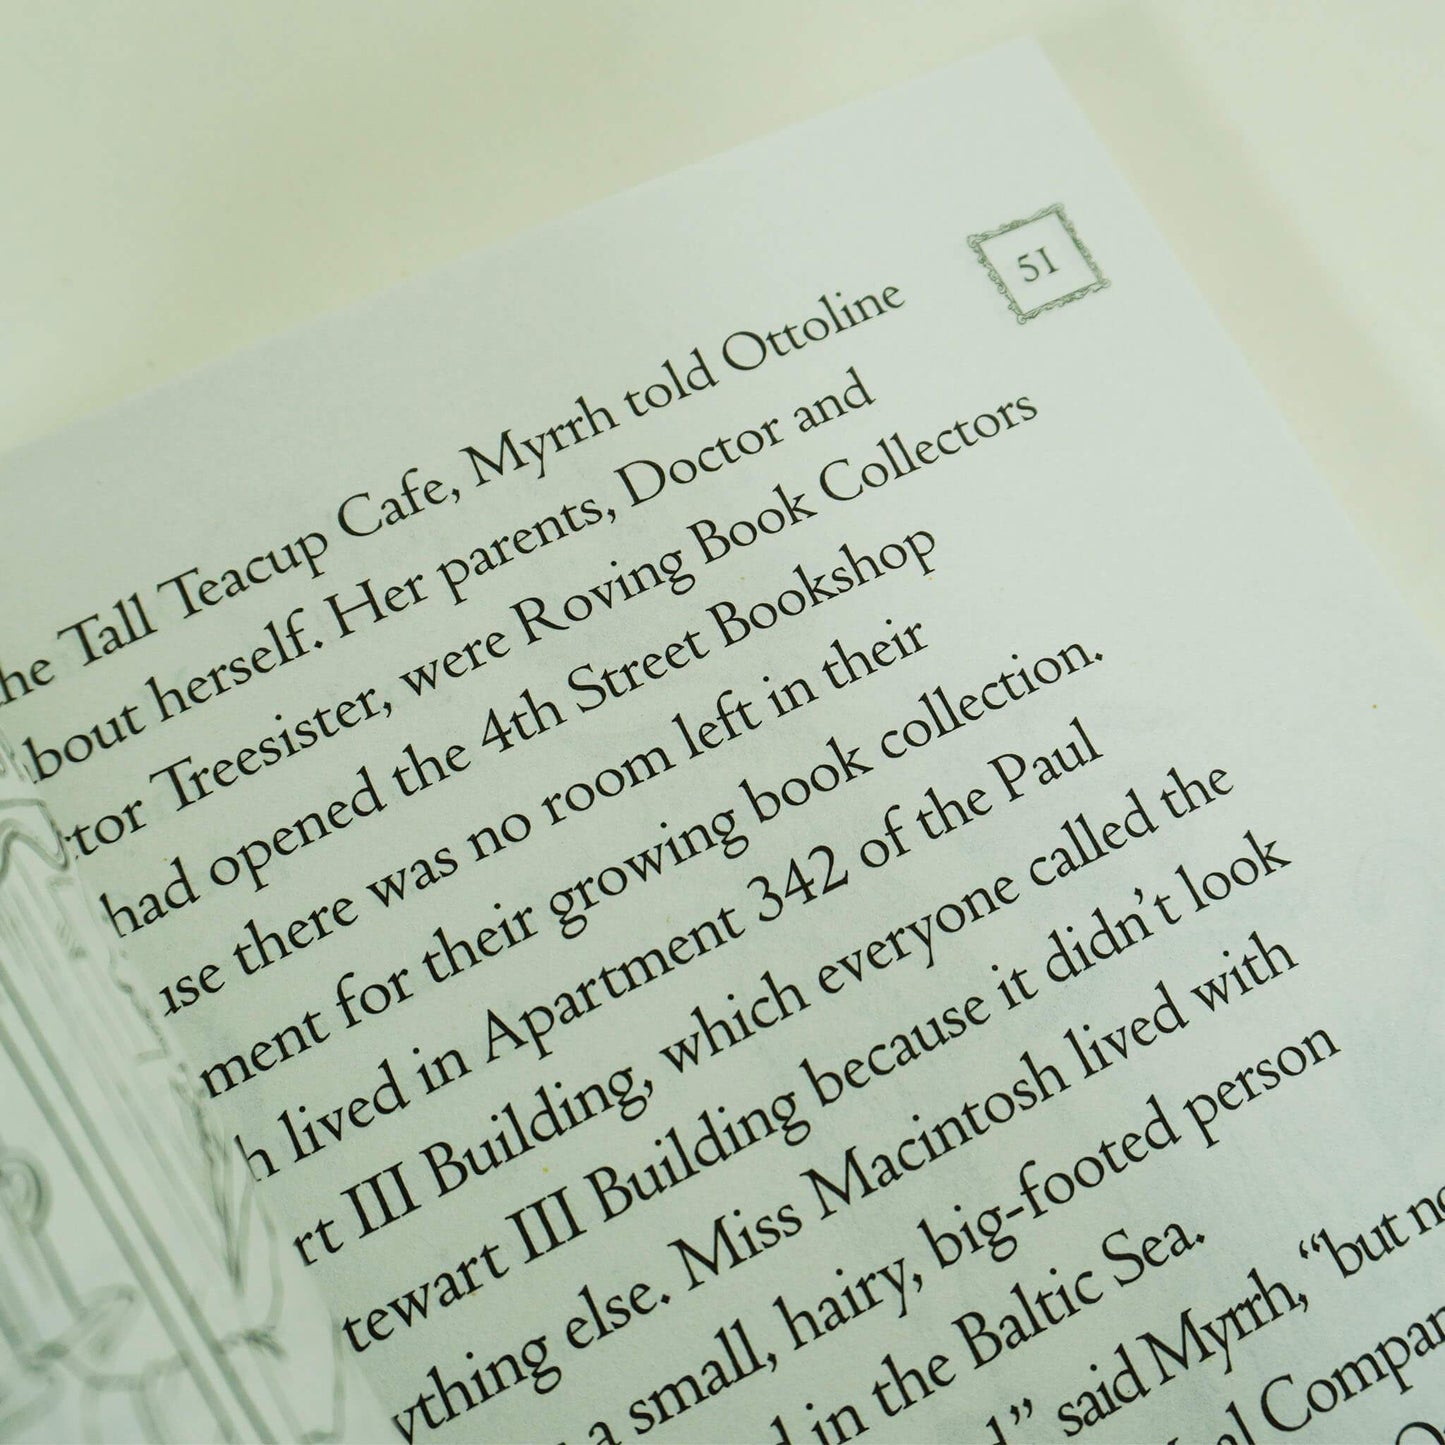 51
he Tall Teacup Cafe, Myrrh told Ottoline
bout herself. Her parents, Doctor and
tor Treesister, were Roving Book Collectors
had opened the 4th Street Bookshop
use there was no room left in their
ment for their growing book collection.
h lived in Apartment 342 of the Paul
rt III Building, which everyone called the
tewart III Building because it didn't look
ything else. Miss Macintosh lived with
a small, hairy, big-footed person
d in the Baltic Sea.
d,” said Myrrh, “but no
al Compan